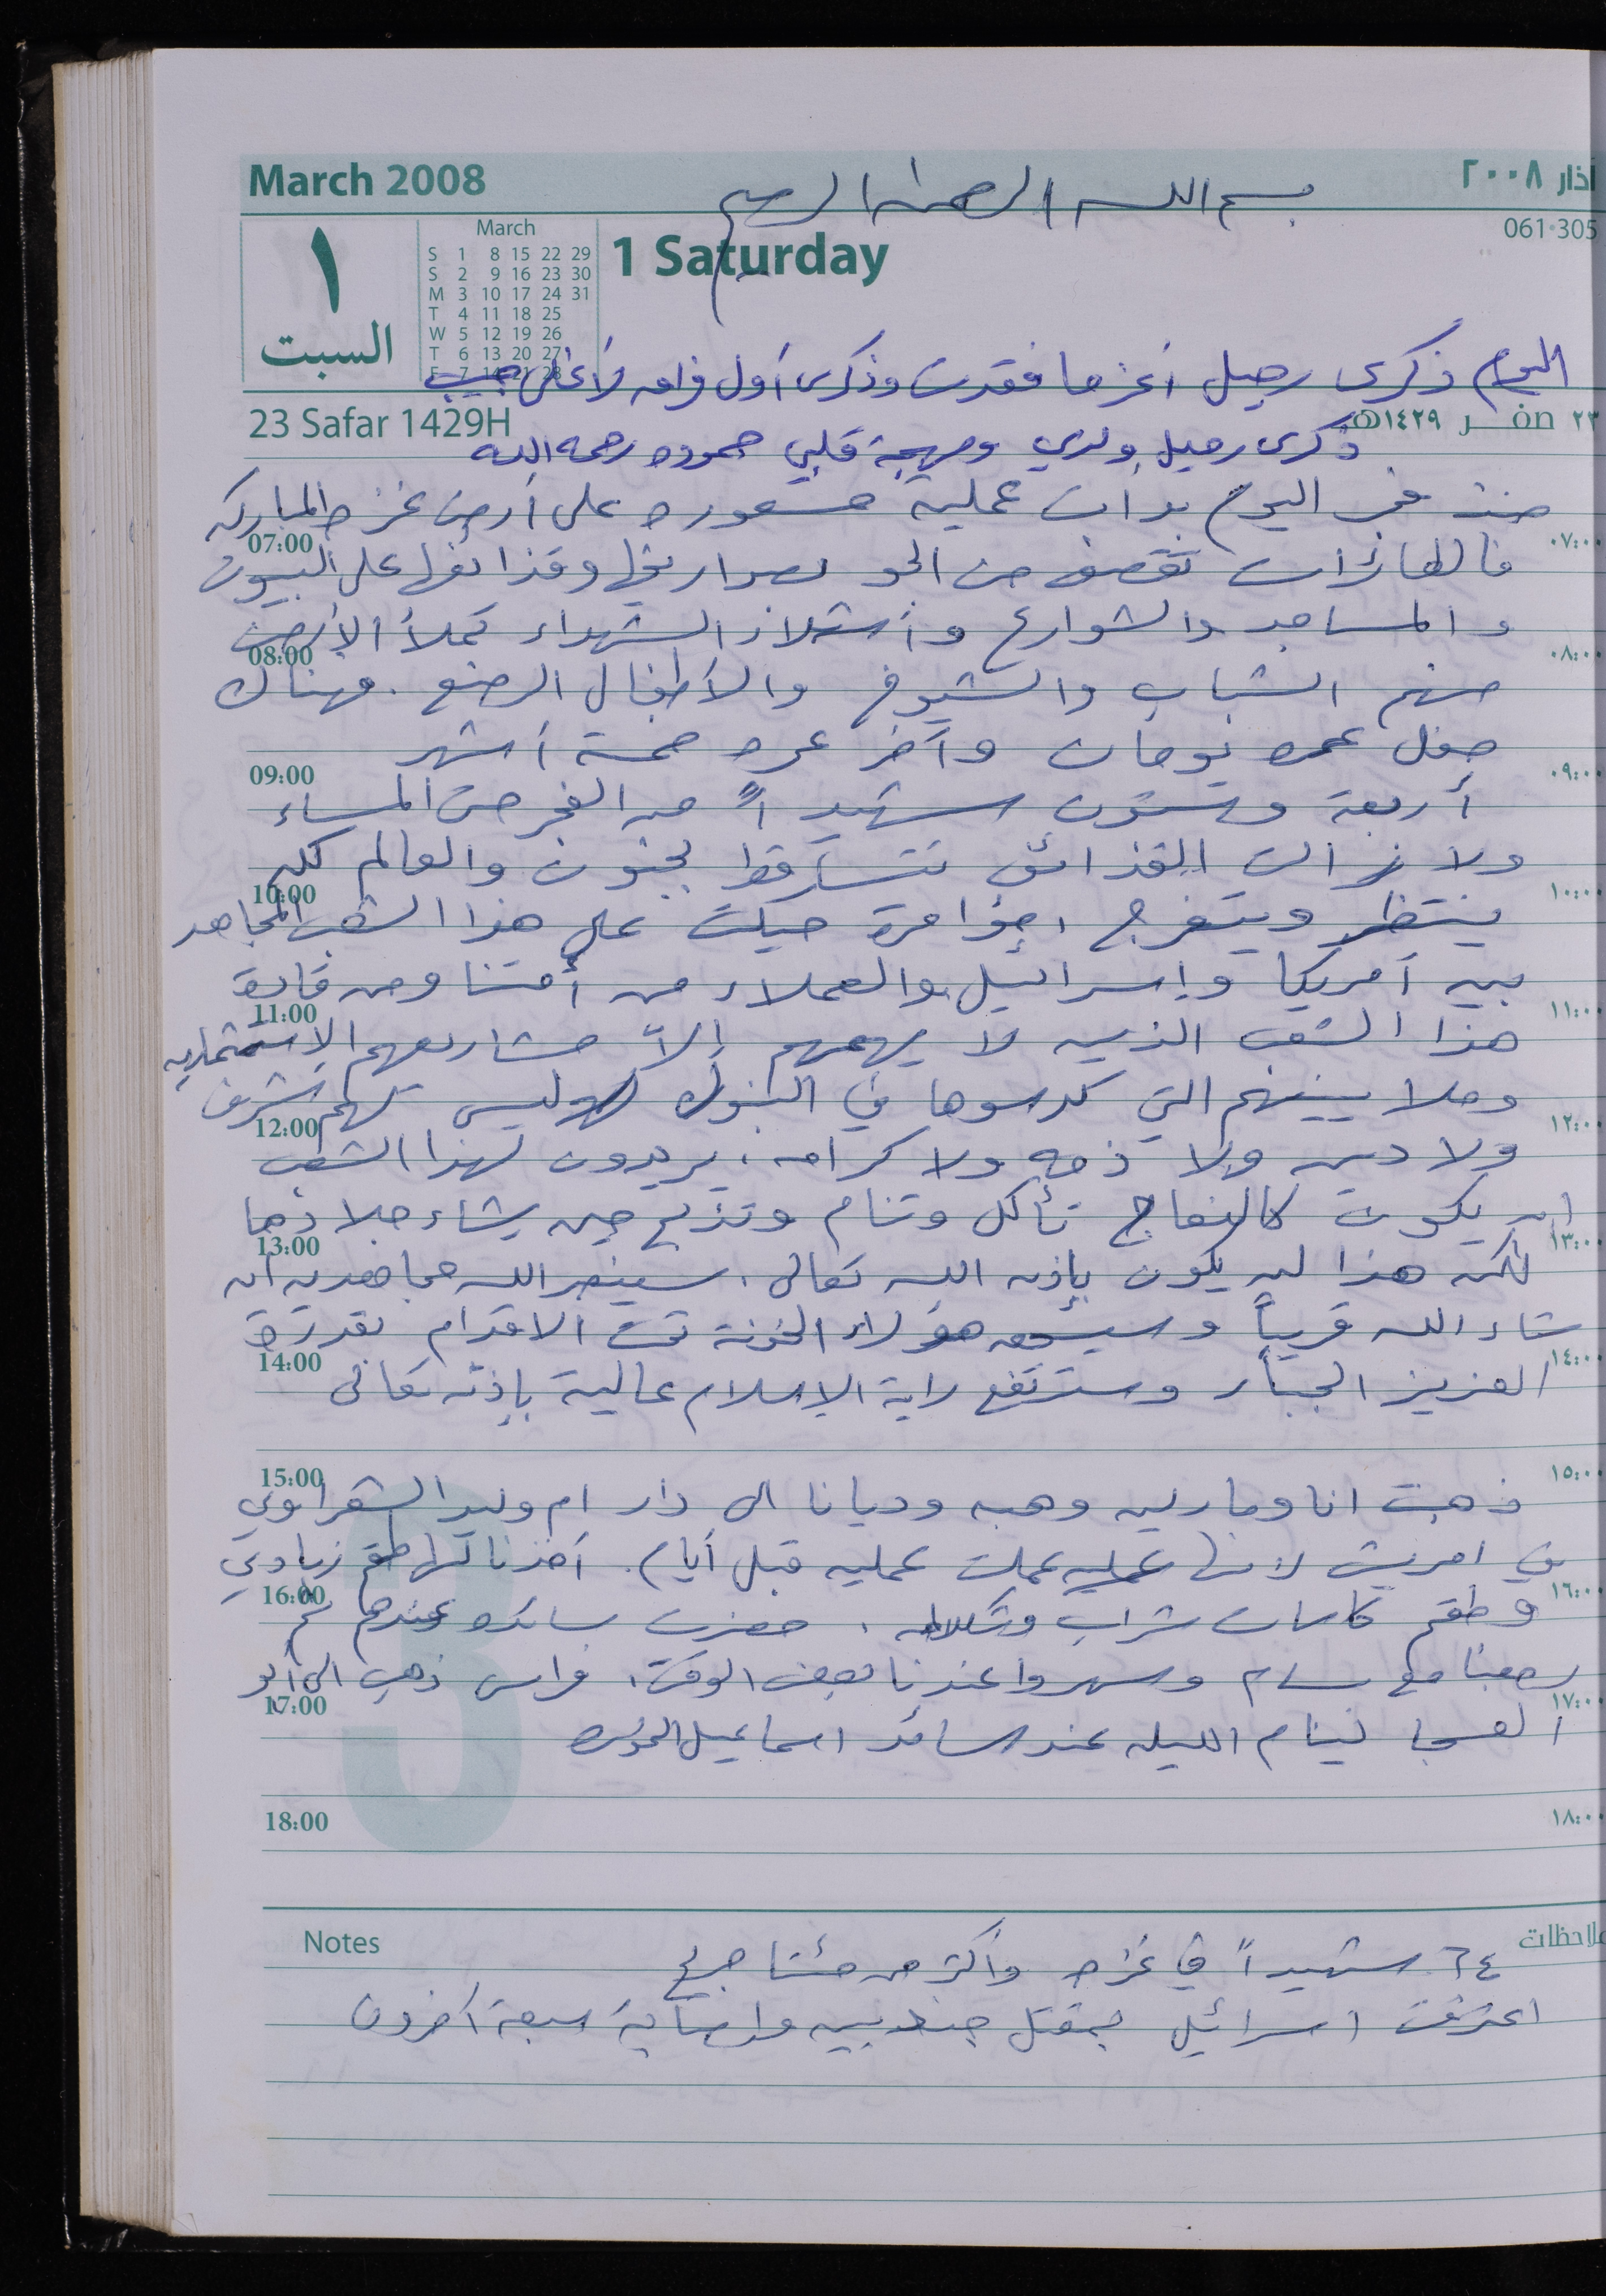 March 2008
آذار ٢٠٠٨
بسم الله الرحمن الرحيم
061·305
١
السبت
March
S 1 8 15 22 29
S 2 9 16 23 30
M 3 10 17 24 31
T 4 11 18 25
W 5 12 19 26
T 6 13 20 27
F 7 14 21 28
1 Saturday
اليوم ذكرى رحيل أعز ما فقدت وذكرى أول فراق لأغلى حبيب
23 Safar 1429H
٢٣ صفر ١٤٢٩هـ
ذكرى رحيل ولدي ومهجة قلبي حموده رحمه الله
منذ فجر اليوم بدأت عملية مسعوره على أرض غزه المباركه
07:00 ٠٧:٠٠
فالطائرات تقصف من الجو بصواريخها وقذائفها على البيوت
والمساجد والشوارع وأشلاء الشهداء تملأ الأرض
08:00 ٠٨:٠٠
منهم الشباب والشيوخ والأطفال الرضع. فهناك
طفل عمره يومان وآخر عمره خمسة أشهر
09:00 ٠٩:٠٠
أربعة وستون شهيداً من الفجر حتى المساء
ولا زالت القذائف تتساقط بجنون والعالم كله
10:00 ١٠:٠٠
ينتظر ويتفرج، مؤامرة حيكت على هذا الشعب المجاهد
بين أمريكا وإسرائيل والعملاء من أمتنا ومن قادة
11:00 ١١:٠٠
هذا الشعب الذين لا يهمهم إلاّ مشاريعهم الإستثماريه
وملايينهم التي كدسوها في البنوك وليس لهم شرف
12:00 ١٢:٠٠
ولا دين ولا ذمه ولا كرامه، يريدون لهذا الشعب
ان يكون كالنعاج تأكل وتنام وتذبح حين يشاء جلادها
13:00 ١٣:٠٠
لكن هذا لن يكون بإذن الله تعالى، سينصر الله مجاهدينه ان
شاء الله قريباً وسيسحق هؤلاء الخونة تحت الاقدام بقدرة
14:00 ١٤:٠٠
العزيز الجبار وسترتفع راية الإسلام عالية بإذنه تعالى
15:00 ١٥:٠٠
ذهبت انا ومارلين وهبه وديانا الى دار ام وليد الشعراوي
في امريش لانها عمليه عملت عمليه قبل أيام. أخذنا لها طقم زبادي
16:00 ١٦:٠٠
وطقم كاسات شراب وشكلاطه. حضرت سائده عندهم ثم
رجعنا مع بسام وسهروا عندنا بعض الوقت، فراس ذهب الى أبو
17:00 ١٧:٠٠
العسجا لينام الليله عند اسماعيل
18:00 ١٨:٠٠
Notes
ملاحظات
٦٤ شهيداً في غزه وأكثر من مئتا جريح
اعترفت اسرائيل بمقتل جنديين واصابة سبعة آخرون